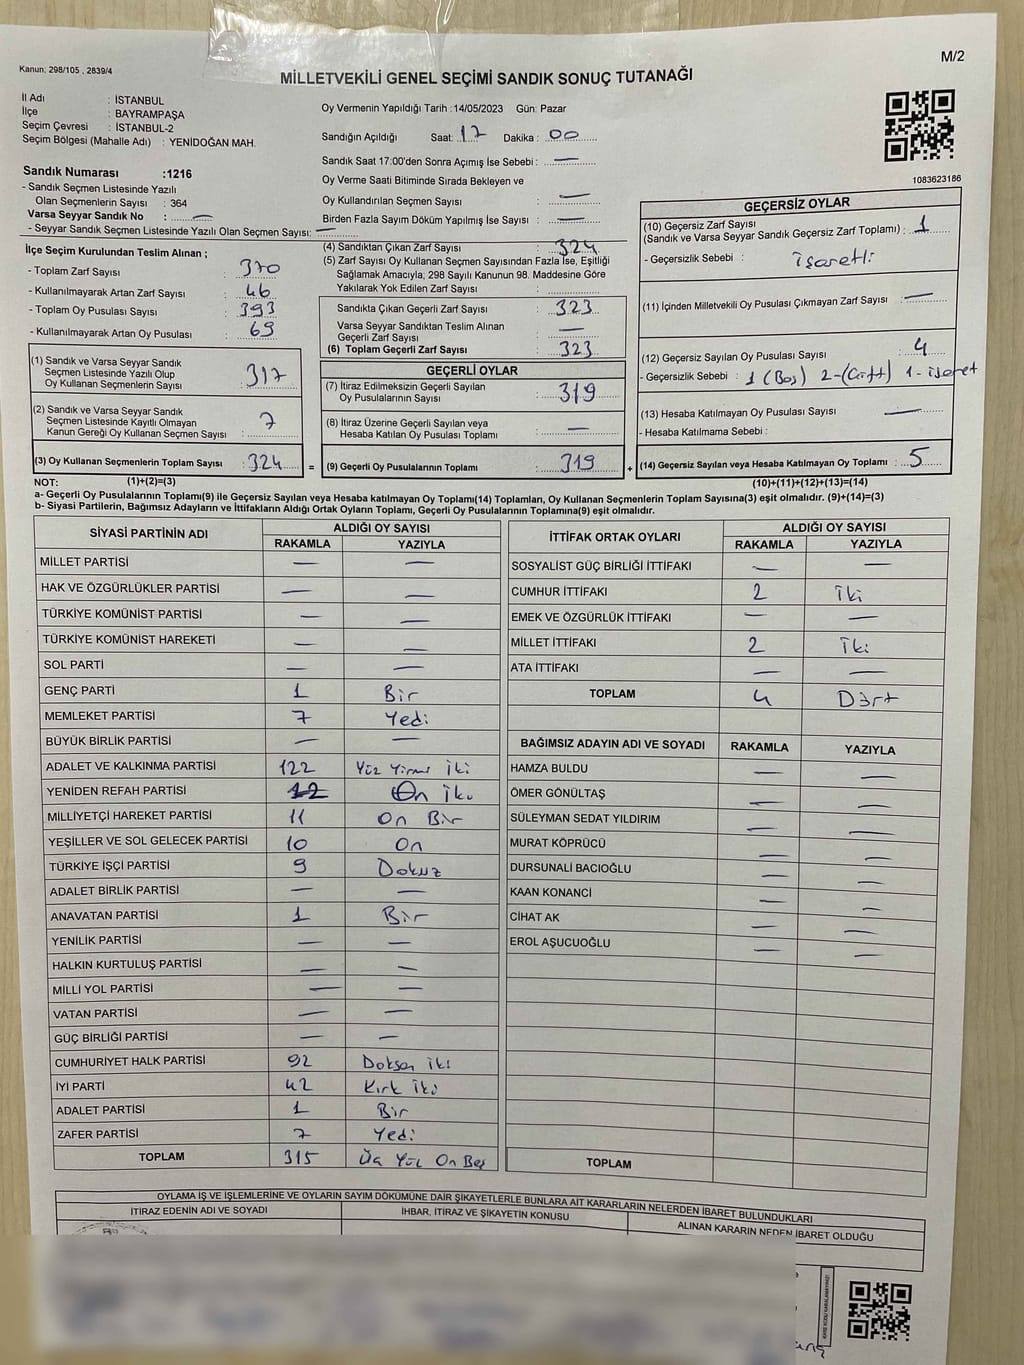 M/2
Kanun; 298/105 , 2839/4
MİLLETVEKİLİ GENEL SEÇİMİ SANDIK SONUÇ TUTANAĞI
İl Adı : İSTANBUL
İlçe : BAYRAMPAŞA
Seçim Çevresi : İSTANBUL-2
Seçim Bölgesi (Mahalle Adı) : YENİDOĞAN MAH.
Sandık Numarası :1216
- Sandık Seçmen Listesinde Yazılı
Olan Seçmenlerin Sayısı : 364
Varsa Seyyar Sandık No : —
- Seyyar Sandık Seçmen Listesinde Yazılı Olan Seçmen Sayısı: —
Oy Vermenin Yapıldığı Tarih :14/05/2023 Gün: Pazar
Sandığın Açıldığı Saat: 17 Dakika : 00
Sandık Saat 17:00'den Sonra Açımış İse Sebebi : —
Oy Verme Saati Bitiminde Sırada Bekleyen ve
Oy Kullandırılan Seçmen Sayısı : —
Birden Fazla Sayım Döküm Yapılmış İse Sayısı : —
1083623186
İlçe Seçim Kurulundan Teslim Alınan ;
- Toplam Zarf Sayısı : 370
- Kullanılmayarak Artan Zarf Sayısı : 46
- Toplam Oy Pusulası Sayısı : 393
- Kullanılmayarak Artan Oy Pusulası : 69
(1) Sandık ve Varsa Seyyar Sandık
Seçmen Listesinde Yazılı Olup
Oy Kullanan Seçmenlerin Sayısı : 317
(2) Sandık ve Varsa Seyyar Sandık
Seçmen Listesinde Kayıtlı Olmayan
Kanun Gereği Oy Kullanan Seçmen Sayısı : 7
(3) Oy Kullanan Seçmenlerin Toplam Sayısı : 324 =
(4) Sandıktan Çıkan Zarf Sayısı : 324
(5) Zarf Sayısı Oy Kullanan Seçmen Sayısından Fazla İse, Eşitliği
Sağlamak Amacıyla, 298 Sayılı Kanunun 98. Maddesine Göre
Yakılarak Yok Edilen Zarf Sayısı :
Sandıkta Çıkan Geçerli Zarf Sayısı : 323
Varsa Seyyar Sandıktan Teslim Alınan
Geçerli Zarf Sayısı : —
(6) Toplam Geçerli Zarf Sayısı : 323
GEÇERLİ OYLAR
(7) İtiraz Edilmeksizin Geçerli Sayılan
Oy Pusulalarının Sayısı : 319
(8) İtiraz Üzerine Geçerli Sayılan veya
Hesaba Katılan Oy Pusulası Toplamı : —
(9) Geçerli Oy Pusulalarının Toplamı : 319 +
GEÇERSİZ OYLAR
(10) Geçersiz Zarf Sayısı
(Sandık ve Varsa Seyyar Sandık Geçersiz Zarf Toplamı) : 1
- Geçersizlik Sebebi : işaretli
(11) İçinden Milletvekili Oy Pusulası Çıkmayan Zarf Sayısı : —
(12) Geçersiz Sayılan Oy Pusulası Sayısı : 4
- Geçersizlik Sebebi : 1 (Boş) 2-(Çift) 1-işaret
(13) Hesaba Katılmayan Oy Pusulası Sayısı : —
- Hesaba Katılmama Sebebi :
(14) Geçersiz Sayılan veya Hesaba Katılmayan Oy Toplamı : 5
NOT: (1)+(2)=(3) (10)+(11)+(12)+(13)=(14)
a- Geçerli Oy Pusulalarının Toplamı(9) ile Geçersiz Sayılan veya Hesaba katılmayan Oy Toplamı(14) Toplamları, Oy Kullanan Seçmenlerin Toplam Sayısına(3) eşit olmalıdır. (9)+(14)=(3)
b- Siyasi Partilerin, Bağımsız Adayların ve İttifakların Aldığı Ortak Oyların Toplamı, Geçerli Oy Pusulalarının Toplamına(9) eşit olmalıdır.
SİYASİ PARTİNİN ADI ALDIĞI OY SAYISI
RAKAMLA YAZIYLA
MİLLET PARTİSİ — —
HAK VE ÖZGÜRLÜKLER PARTİSİ — —
TÜRKİYE KOMÜNİST PARTİSİ — —
TÜRKİYE KOMÜNİST HAREKETİ — —
SOL PARTİ — —
GENÇ PARTİ 1 Bir
MEMLEKET PARTİSİ 7 Yedi
BÜYÜK BİRLİK PARTİSİ — —
ADALET VE KALKINMA PARTİSİ 122 Yüz Yirmi İki
YENİDEN REFAH PARTİSİ 12 On İki
MİLLİYETÇİ HAREKET PARTİSİ 11 On Bir
YEŞİLLER VE SOL GELECEK PARTİSİ 10 On
TÜRKİYE İŞÇİ PARTİSİ 9 Dokuz
ADALET BİRLİK PARTİSİ — —
ANAVATAN PARTİSİ 1 Bir
YENİLİK PARTİSİ — —
HALKIN KURTULUŞ PARTİSİ — —
MİLLİ YOL PARTİSİ — —
VATAN PARTİSİ — —
GÜÇ BİRLİĞİ PARTİSİ — —
CUMHURİYET HALK PARTİSİ 92 Doksan iki
İYİ PARTİ 42 Kırk iki
ADALET PARTİSİ 1 Bir
ZAFER PARTİSİ 7 Yedi
TOPLAM 315 Üç Yüz On Beş
İTTİFAK ORTAK OYLARI ALDIĞI OY SAYISI
RAKAMLA YAZIYLA
SOSYALİST GÜÇ BİRLİĞİ İTTİFAKI — —
CUMHUR İTTİFAKI 2 İki
EMEK VE ÖZGÜRLÜK İTTİFAKI — —
MİLLET İTTİFAKI 2 İki
ATA İTTİFAKI — —
TOPLAM 4 Dört
BAĞIMSIZ ADAYIN ADI VE SOYADI RAKAMLA YAZIYLA
HAMZA BULDU — —
ÖMER GÖNÜLTAŞ — —
SÜLEYMAN SEDAT YILDIRIM — —
MURAT KÖPRÜCÜ — —
DURSUNALİ BACIOĞLU — —
KAAN KONANCİ — —
CİHAT AK — —
EROL AŞUCUOĞLU — —
TOPLAM
OYLAMA İŞ VE İŞLEMLERİNE VE OYLARIN SAYIM DÖKÜMÜNE DAİR ŞİKAYETLERLE BUNLARA AİT KARARLARIN NELERDEN İBARET BULUNDUKLARI
İTİRAZ EDENİN ADI VE SOYADI İHBAR, İTİRAZ VE ŞİKAYETİN KONUSU ALINAN KARARIN NEDEN İBARET OLDUĞU